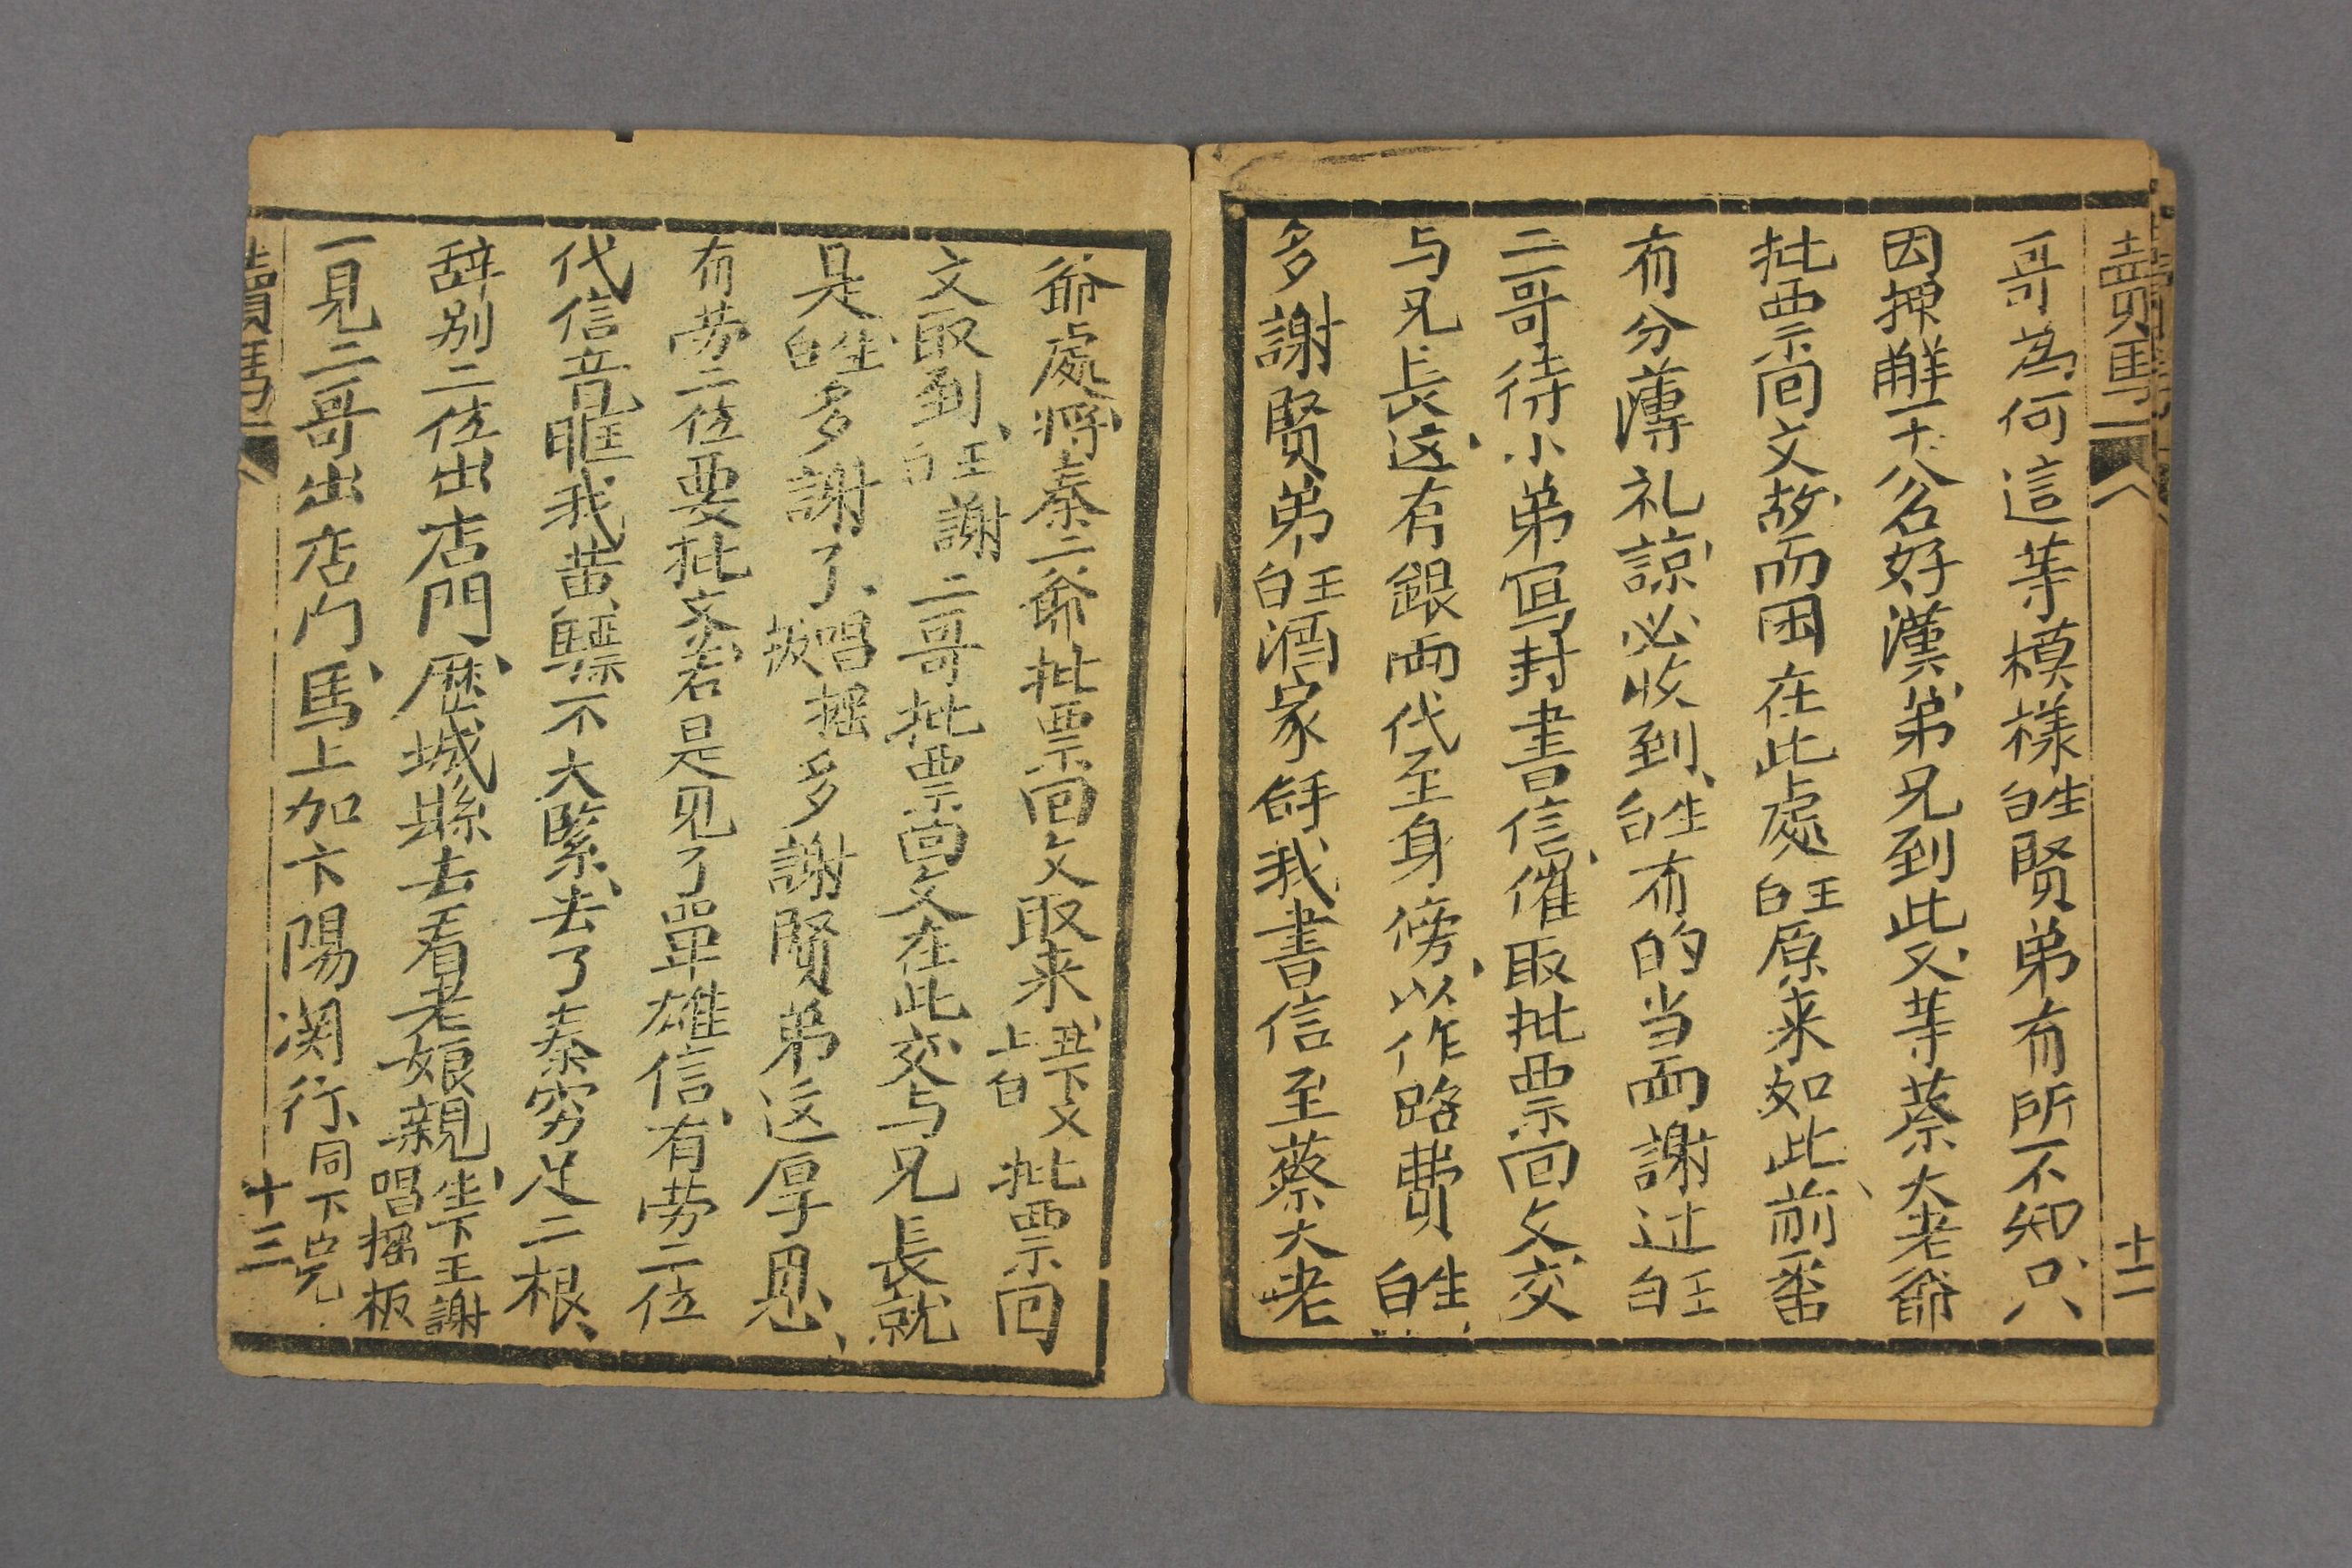 賣馬 十二
哥為何這等模樣 生白 賢弟有所不知只
因押解十八名好漢弟兄到此又等蔡大老爺
批票回文故而困在此處 王白 原来如此前番
有分薄礼諒必收到 生白 有的当面謝过 王白
二哥待小弟冩封書信催取批票回文交
与兄長这有銀両代至身傍以作路費 生白
多謝賢弟 王白 酒家 我書信至蔡大老
爺處将秦二爺批票回文取来 丑下又上白 批票回
文取到 王白 謝二哥批票回文在此交与兄長就
是 生白 多謝了 唱摇扳 多謝賢弟这厚恩
有劳二位要批文若是见了單雄信有劳二位
代信音 我黄驃不大緊去了秦穷足二根
辞别二位出店門歷城縣去看老娘親 生下王謝唱摇板
一見二哥出店门馬上加 陽関行 同下完
賣馬 十三